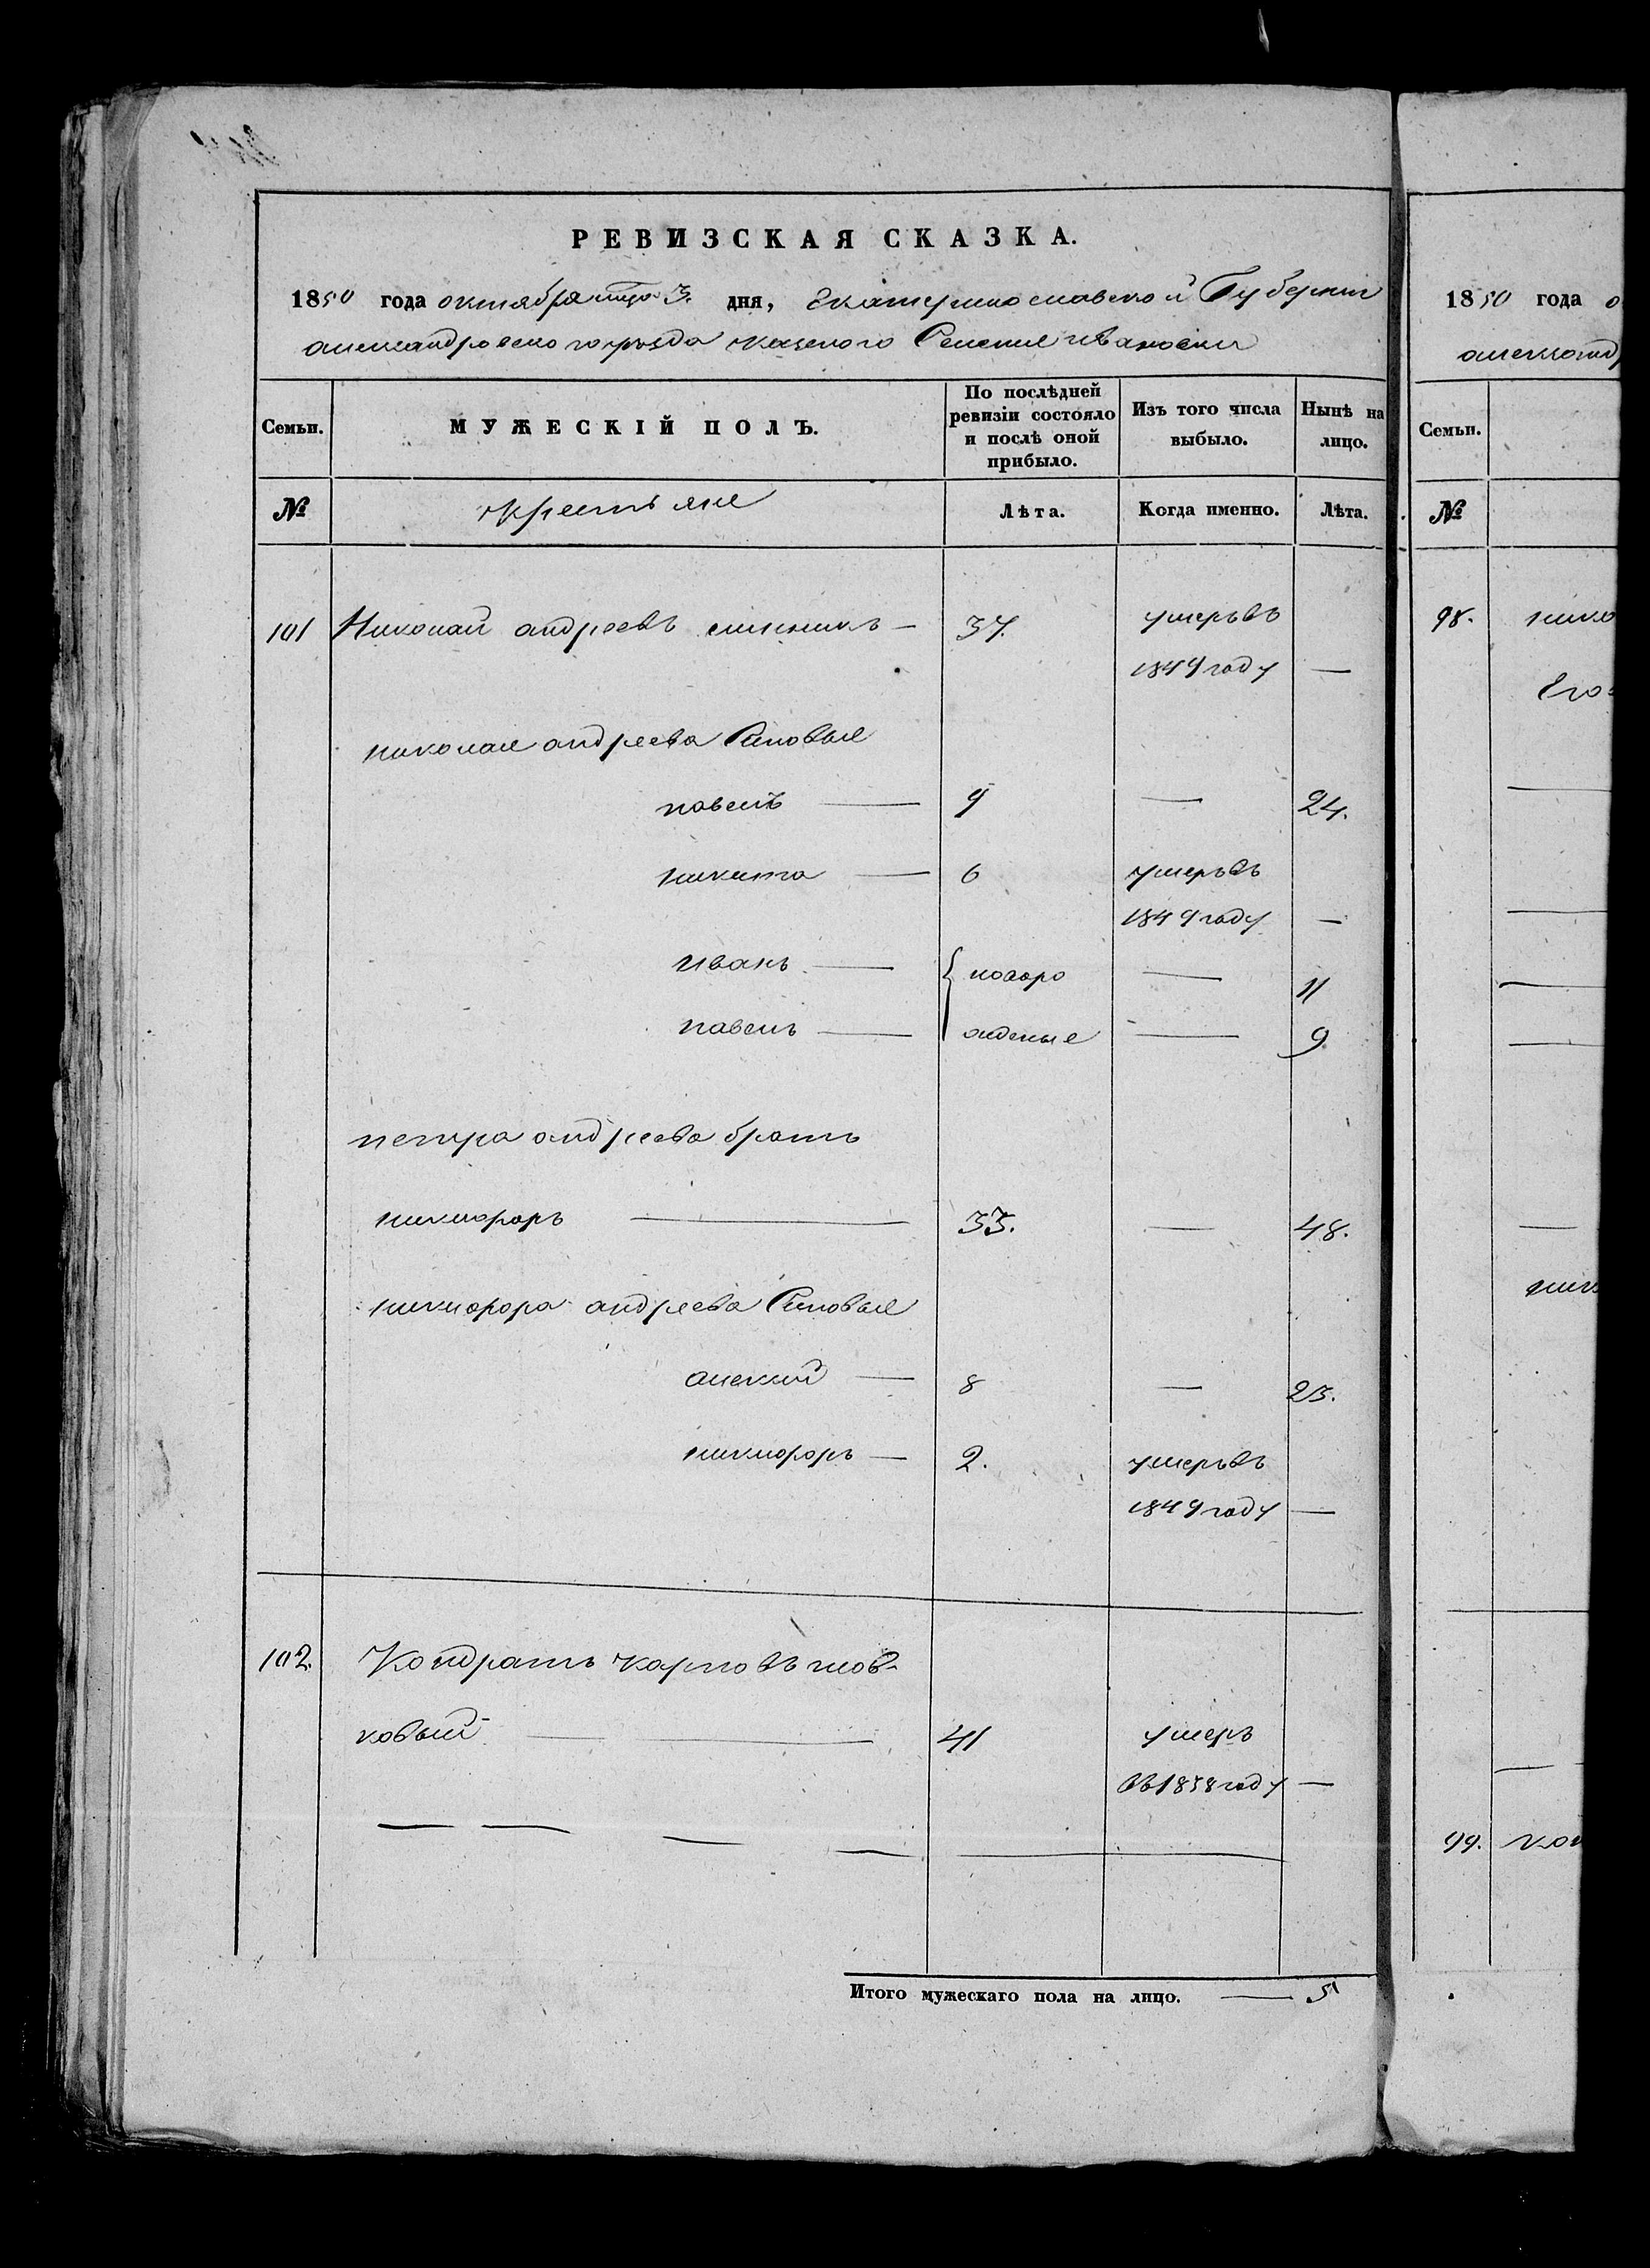 РЕВИЗСКАЯ СКАЗКА.
1850 года октября мца 3. дня, Екатеринославской Губернии
александровского уезда казеного Селения ивановки
Семьи.
МУЖЕСКІЙ ПОЛЪ.
По послѣдней ревизіи состояло и послѣ оной прибыло.
Изъ того числа выбыло.
Нынѣ на лицо.
№
крестьяне
Лѣта.
Когда именно.
Лѣта.
101 Николай андреевъ — 37. умеръ въ
1849 году —
николая андреева Синовья
павелъ — 9 — 24.
никита — 6 умеръ въ
1849 году —
иванъ — { новоро — 11
павелъ — жденые — 9.
петра андреева братъ
никифоръ — 33. — 48.
никифора андреева Синовья
алексий — 8 — 23.
никифоръ — 2. умеръ въ
1849 году —
102. Кондратъ карповъ шов-
ковый — 41 умеръ
въ 1838 году —
Итого мужескаго пола на лицо. — 5
1850 года о
александ
Семьи.
№
98. нико
Его
ник
99. кон